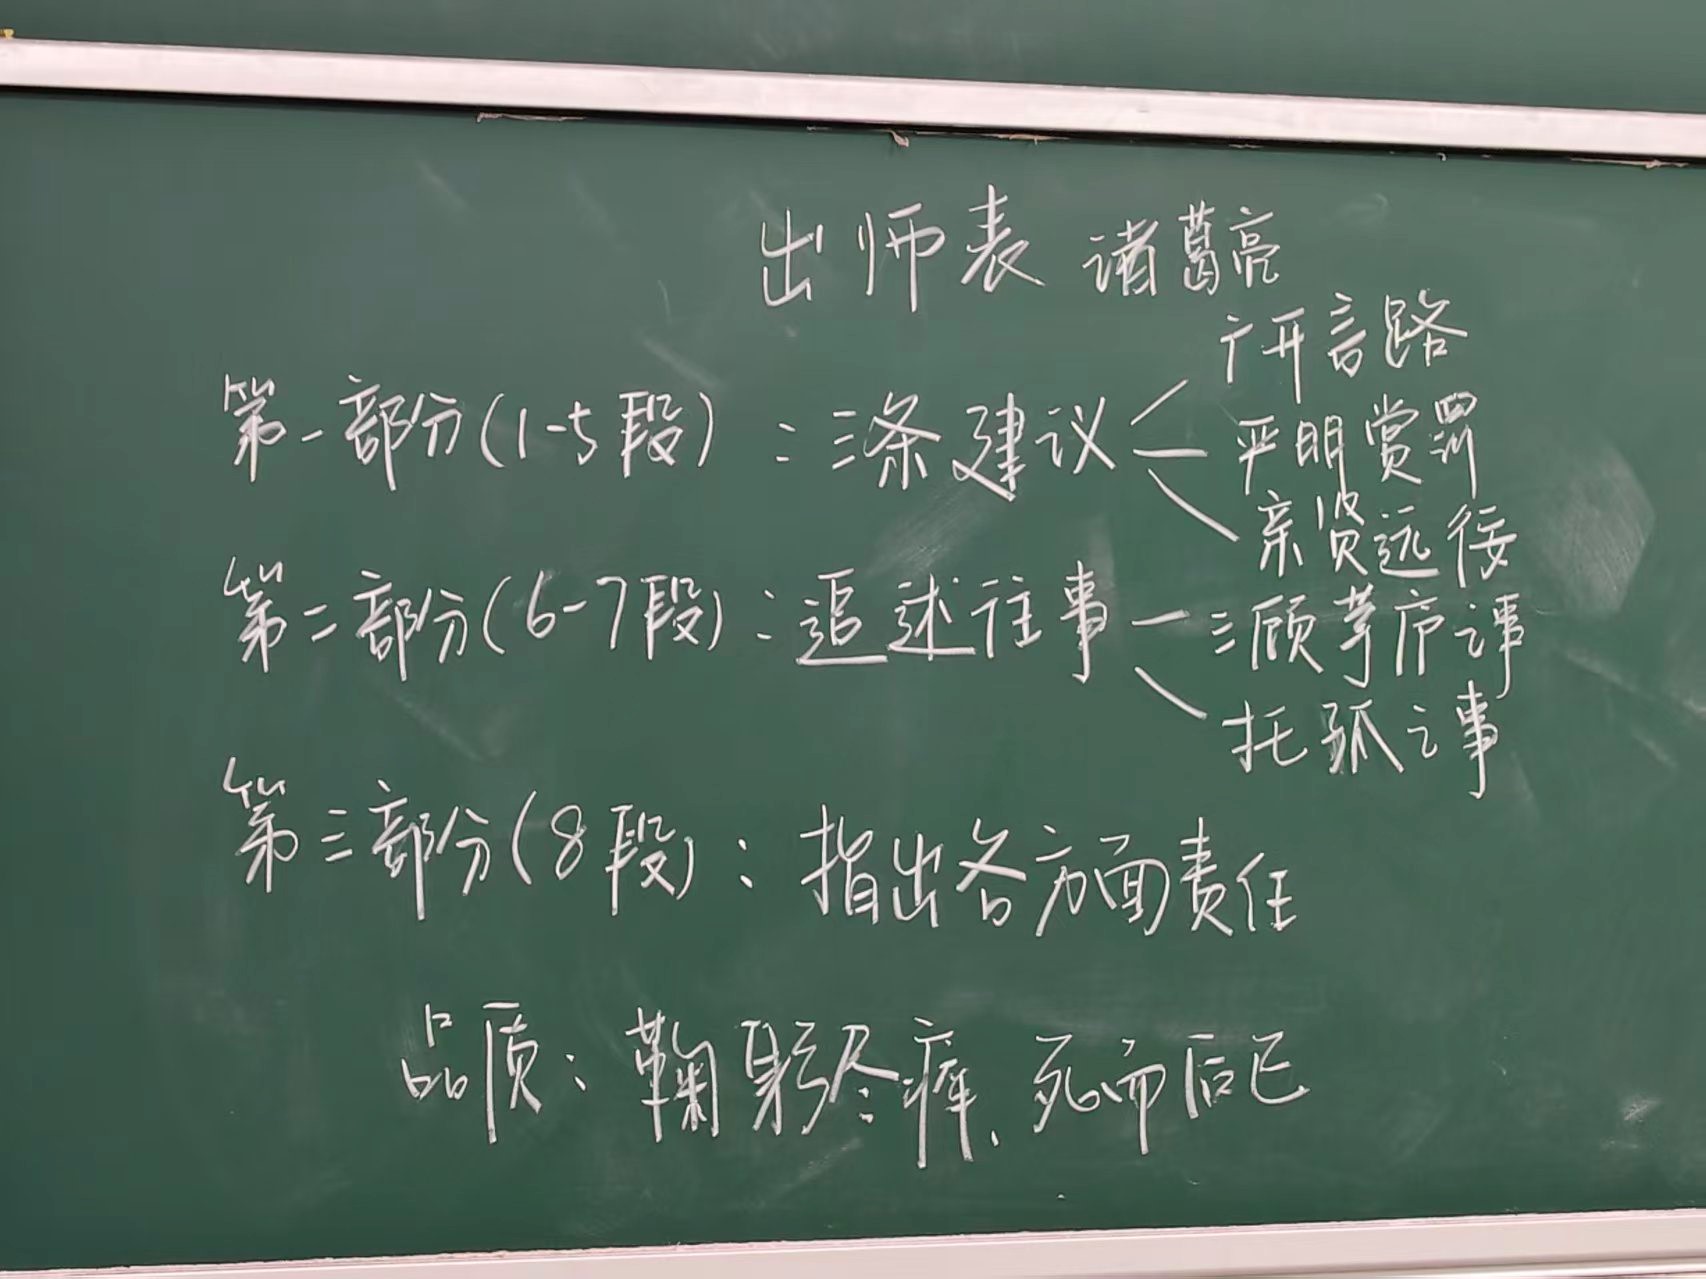 出师表 诸葛亮
第一部分(1-5段):三条建议
广开言路
严明赏罚
亲贤远佞
第二部分(6-7段):追述往事
三顾茅庐之事
托孤之事
第三部分(8段):指出各方面责任
品质:鞠躬尽瘁、死而后已